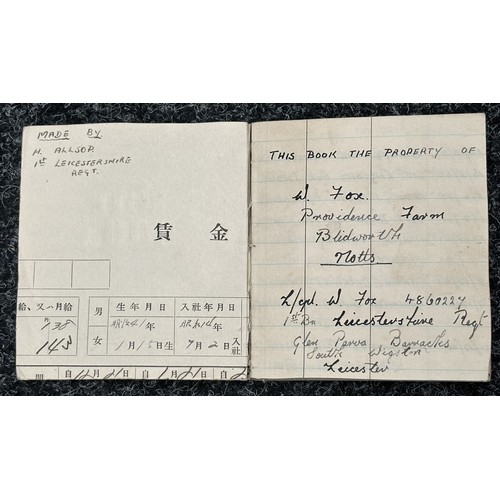 MADE BY
H. ALLSOP.
1st LEICESTERSHIRE
REGT.
賃金
給、又ハ月給
男
生年月日
入社年月日
738
145
女
1月15日生
7月2日入社
自
自
自
THIS BOOK THE PROPERTY OF
W. Fox.
Providence Farm
Blidworth
Notts.
L/cpl. W. Fox 4860227
1st Bn Leicestershire Regt
Glen Parva Barracks
South Wigston
Leicester